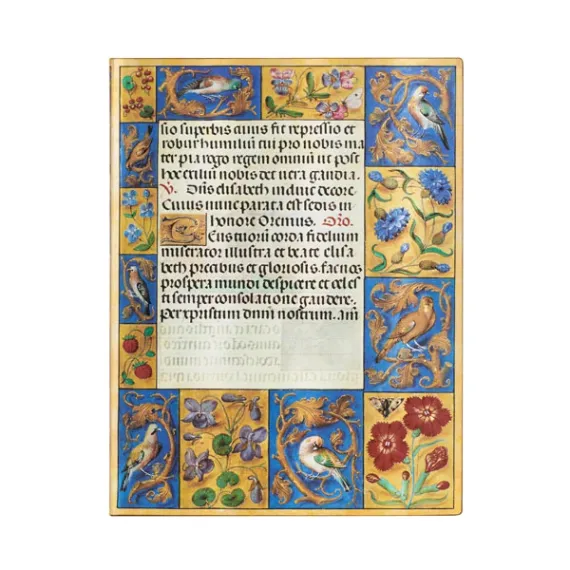 sio superbis cuius fit repressio et
robur humilium cui pro nobis ma
ter pia rogo regem omnium ut post
hoc exilium nobis det vera gaudia.
V. Dns elisabeth induit decore
Cuius nunc parata est sedis in
honore Oremus. Oro.
corda fidelium
miserator illustra et beate elisa
beth precibus et gloriosis fac nos
prospera mundi despicere et celes
ti semper consolatione gaudere.
Per xpistum dnm nostrum. am